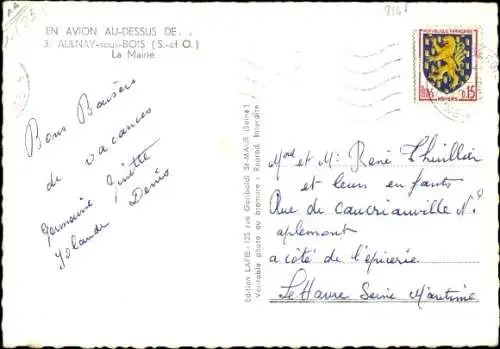 EN AVION AU-DESSUS DE . .
3. AULNAY-sous-BOIS (S.-et O.)
La Mairie
Bons Baisers
de vacances
Germaine Ginette
Yolande Denis
Edition LAPIE - 125 rue Garibaldi St-MAUR (Seine)
Véritable photo au bromure - Reprod. interdite
REPUBLIQUE FRANÇAISE
0,15
NEVERS
Mme et Mr René Lhuillier
et leurs enfants
Rue de caucriauville N°
aplemont
a côté de l'épicerie
Le Havre Seine Maritime